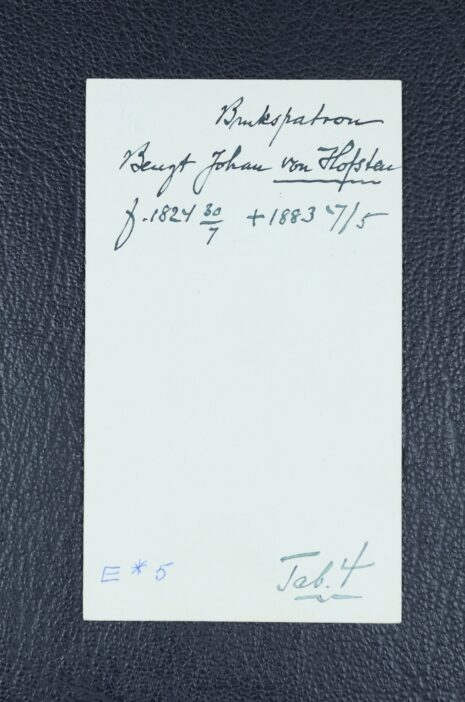 Brukspatron
Bengt Johan von Hofsten
f. 1824 30/7 +1883 7/5
E * 5
Tab. 4